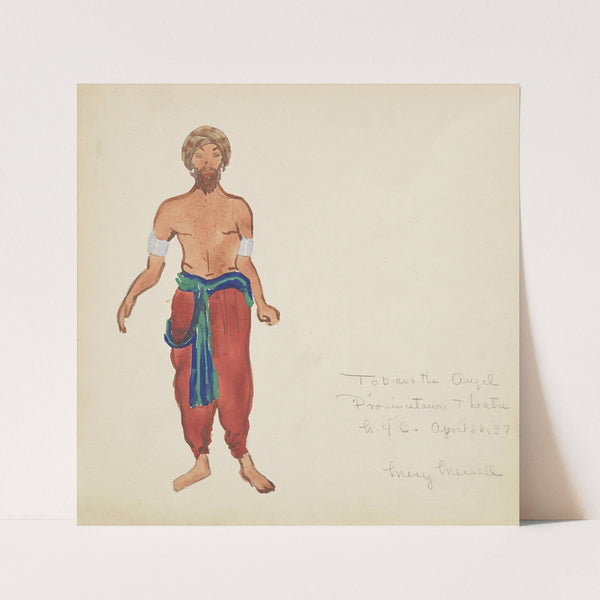 Tobias & the Angel
Provincetown Theatre
N.Y.C. April 28, '37
Mary Merrill